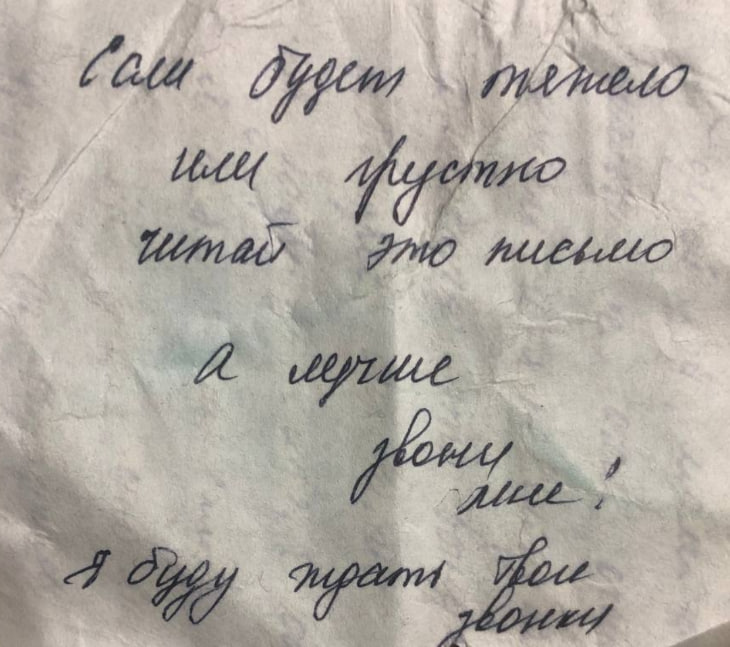 Если будет тяжело
или грустно
читай это письмо
а лучше
звони
мне!
Я буду ждать твои
звонки